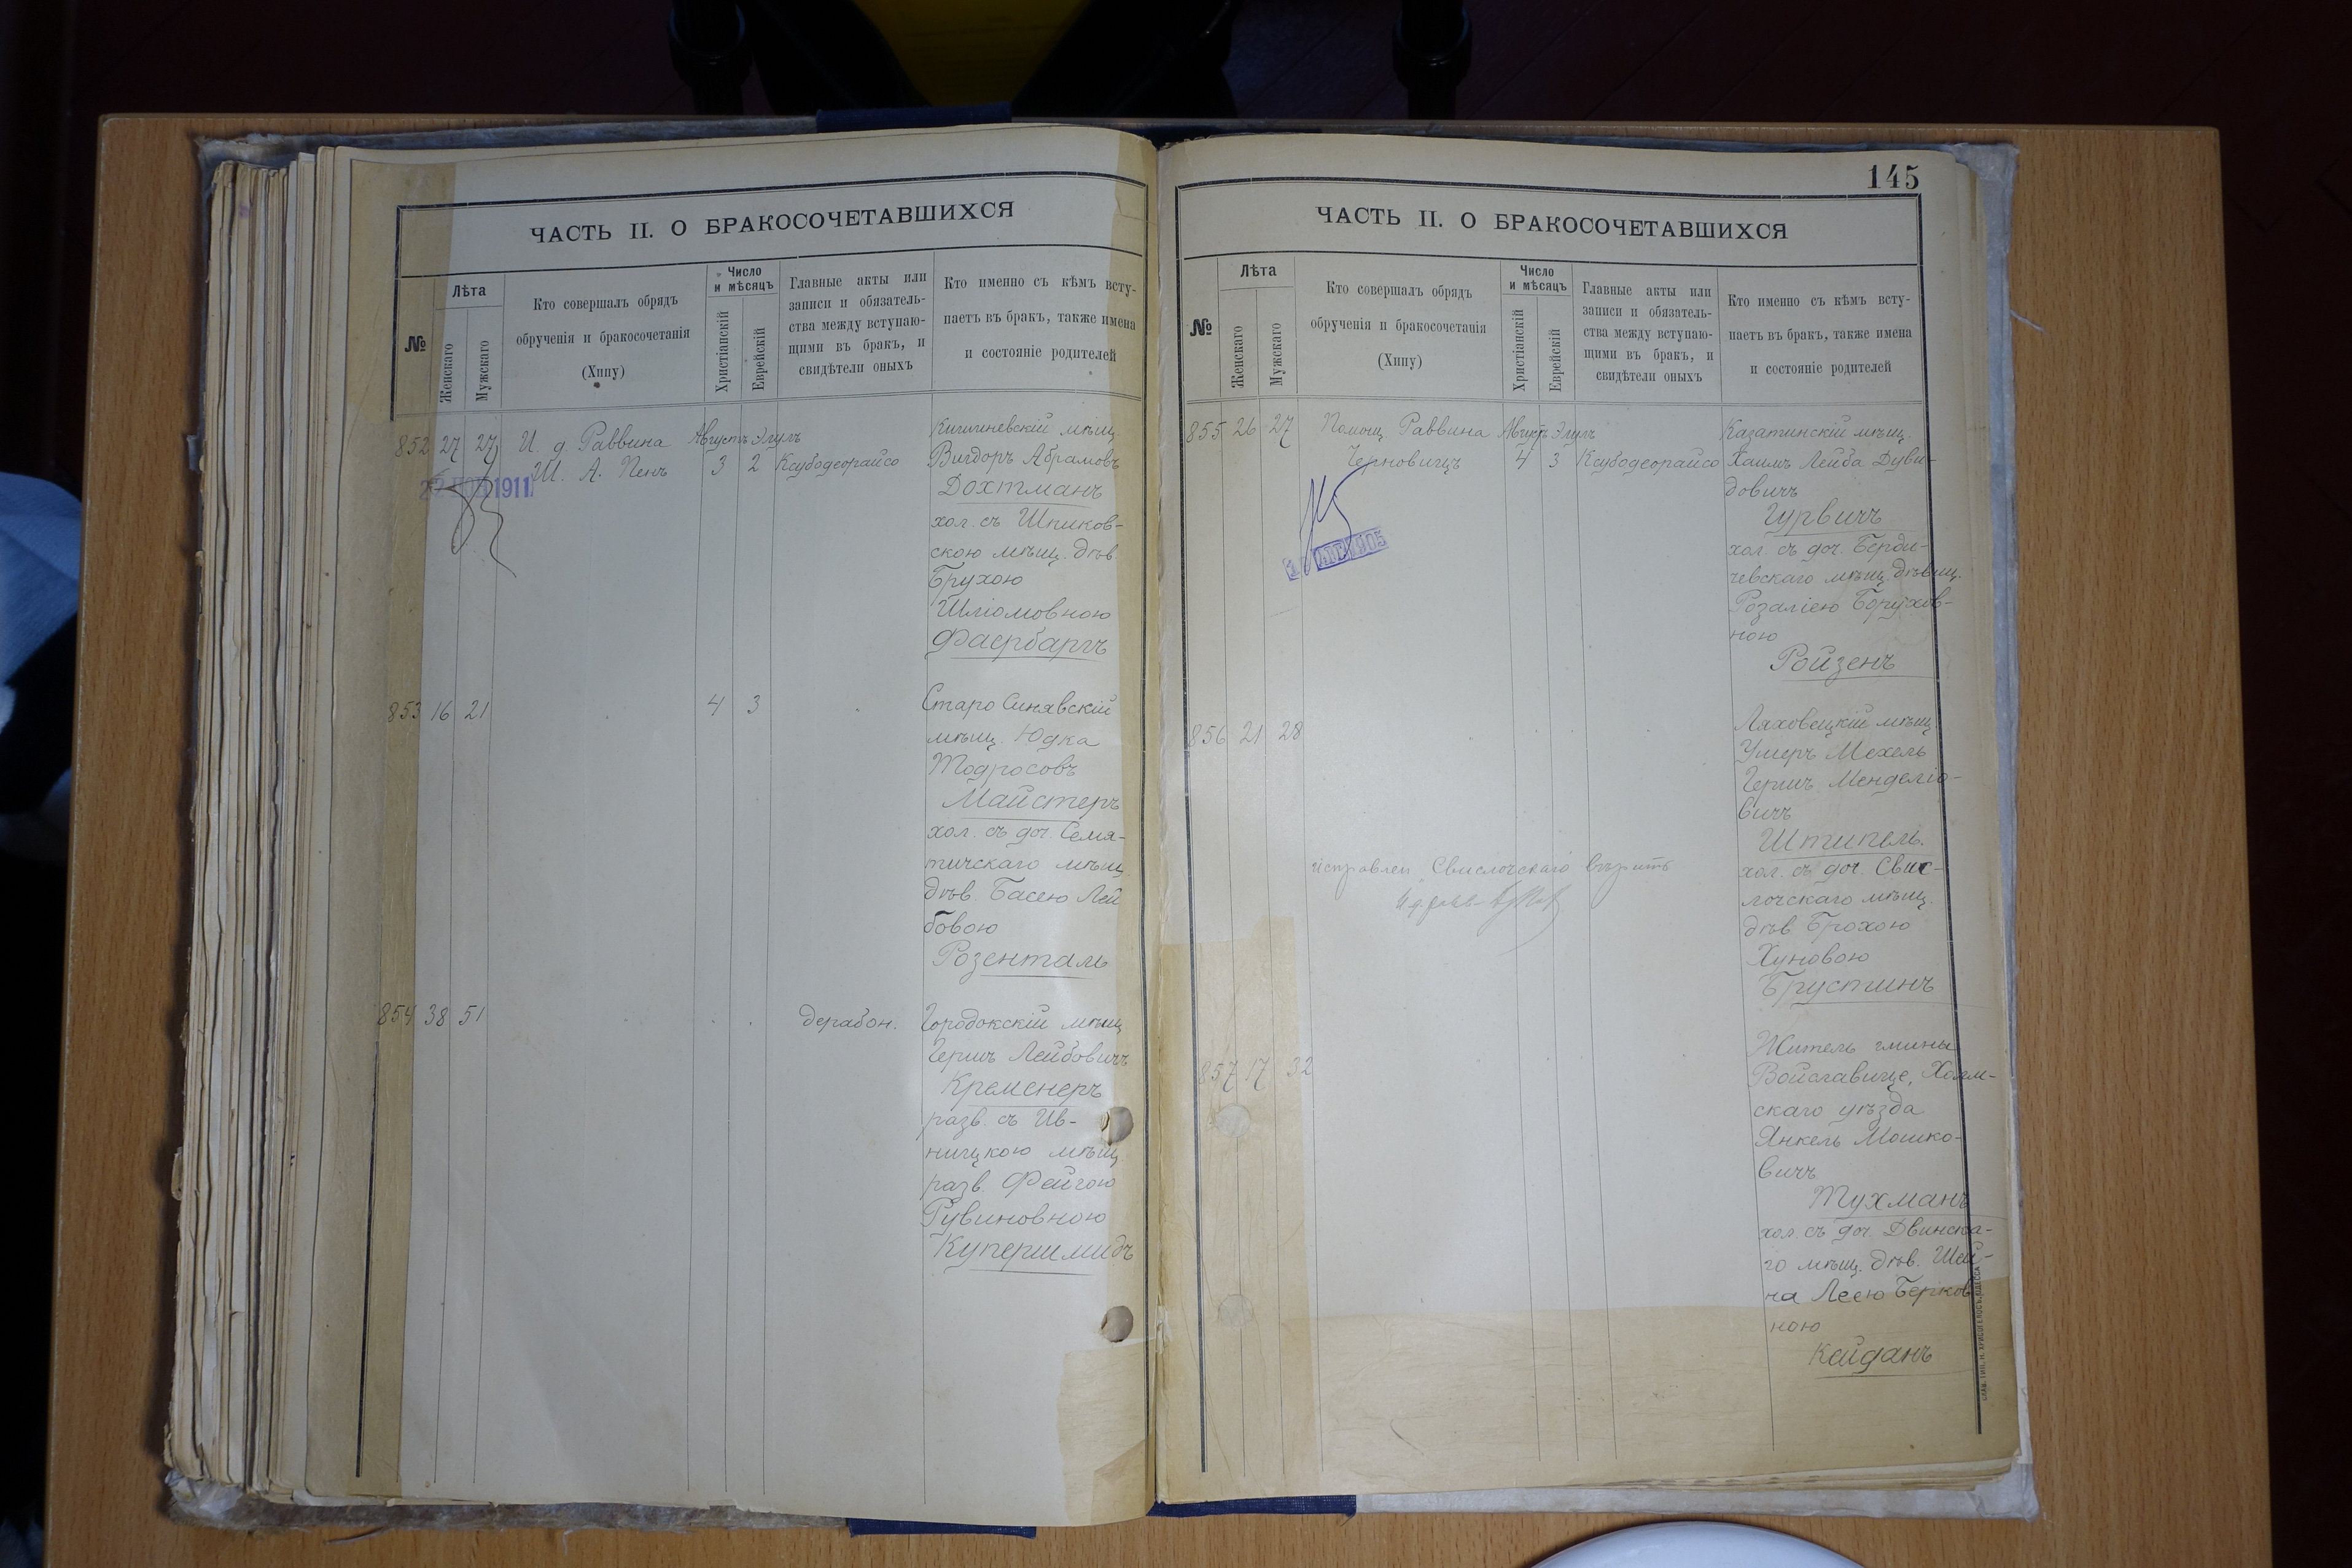 ЧАСТЬ II. О БРАКОСОЧЕТАВШИХСЯ
№
Лѣта
Женскаго
Мужскаго
Кто совершалъ обрядъ
обрученія и бракосочетанія
(Хипу)
Число
и мѣсяцъ
Христіанскій
Еврейскій
Главные акты или
записи и обязатель-
ства между вступаю-
щими въ бракъ, и
свидѣтели оныхъ
Кто именно съ кѣмъ всту-
паетъ въ бракъ, также имена
и состояніе родителей
852 27 27 И. д. Раввина Августъ Элулъ
Ш. А. Пенъ 3 2 Ксубодеорайсо
1911
Кишиневскій мѣщ.
Вигдоръ Абрамовъ
Дохтманъ
хол. съ Шпиков-
скою мѣщ. дѣв.
Брухою
Шліомовною
Фаербаргъ
853 16 21 4 3
Старо Синявскій
мѣщ. Юдка
Тодросовъ
Майстеръ
хол. съ доч. Семя-
тичскаго мѣщ.
дѣв. Басею Лей
бовою
Розенталь
854 38 51 дерабон.
Городокскій мѣщ
Гершъ Лейбовичъ
Кременеръ
разв. съ Ив-
ницкою мѣщ.
разв. Фейгою
Рувиновною
Купершмидъ
145
ЧАСТЬ II. О БРАКОСОЧЕТАВШИХСЯ
№
Лѣта
Женскаго
Мужскаго
Кто совершалъ обрядъ
обрученія и бракосочетанія
(Хипу)
Число
и мѣсяцъ
Христіанскій
Еврейскій
Главные акты или
записи и обязатель-
ства между вступаю-
щими въ бракъ, и
свидѣтели оныхъ
Кто именно съ кѣмъ всту-
паетъ въ бракъ, также имена
и состояніе родителей
855 26 27 Помощ. Раввина Августъ Элулъ
Черновицъ 4 3 Ксубодеорайсо
АВГ 1905
Казатинскій мѣщ.
Хаимъ Лейба Дуви-
довичъ
Гурвичъ
хол. съ доч. Берди-
чевскаго мѣщ. дѣвиц.
Розаліею Борухов-
ною
Ройзенъ
856 21 28
Ляховецкій мѣщ.
Ушеръ Мехель
Гершъ Менделіо-
вичъ
Штипель.
хол. съ доч. Свис-
лочскаго мѣщ.
дѣв. Брохою
Хуновою
Брустинъ
исправлен. Свислочскаго вѣрить
857 17 32
Житель гмины
Войславице, Холм-
скаго уѣзда
Янкель Мошко-
вичъ
Тухманъ
хол. съ доч. Двинска-
го мѣщ. дѣв. Шей-
на Леею Берков
ною
Кейданъ